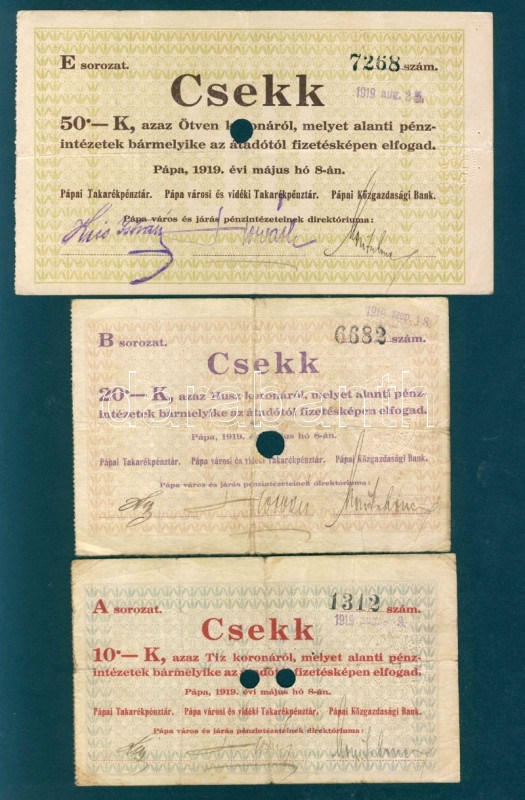 E sorozat. 7268 szám.
1919 aug.
Csekk
50·— K, azaz Ötven koronáról, melyet alanti pénz-
intézetek bármelyike az átadótól fizetésképen elfogad.
Pápa, 1919. évi május hó 8-án.
Pápai Takarékpénztár. Pápa városi és vidéki Takarékpénztár. Pápai Közgazdasági Bank.
Pápa város és járás pénzintézeteinek direktóriuma:
B sorozat. 6682 szám.
Csekk
20·— K, azaz Husz koronáról, melyet alanti pénz
intézetek bármelyike az átadótól fizetésképen elfogad.
Pápa, 1919. május hó 8-án.
Pápai Takarékpénztár. Pápa városi és vidéki Takarékpénztár. Pápai Közgazdasági Bank.
Pápa város és járás pénzintézeteinek direktóriuma:
A sorozat. 1312 szám.
1919
Csekk
10·— K, azaz Tiz koronáról, melyet alanti pénz-
intézetek bármelyike az átadótól fizetésképen elfogad.
Pápa, 1919. évi május hó 8-án.
Pápai Takarékpénztár. Pápa városi és vidéki Takarékpénztár. Pápai Közgazdasági Bank.
Pápa város és járás pénzintézeteinek direktóriuma:
darabanth